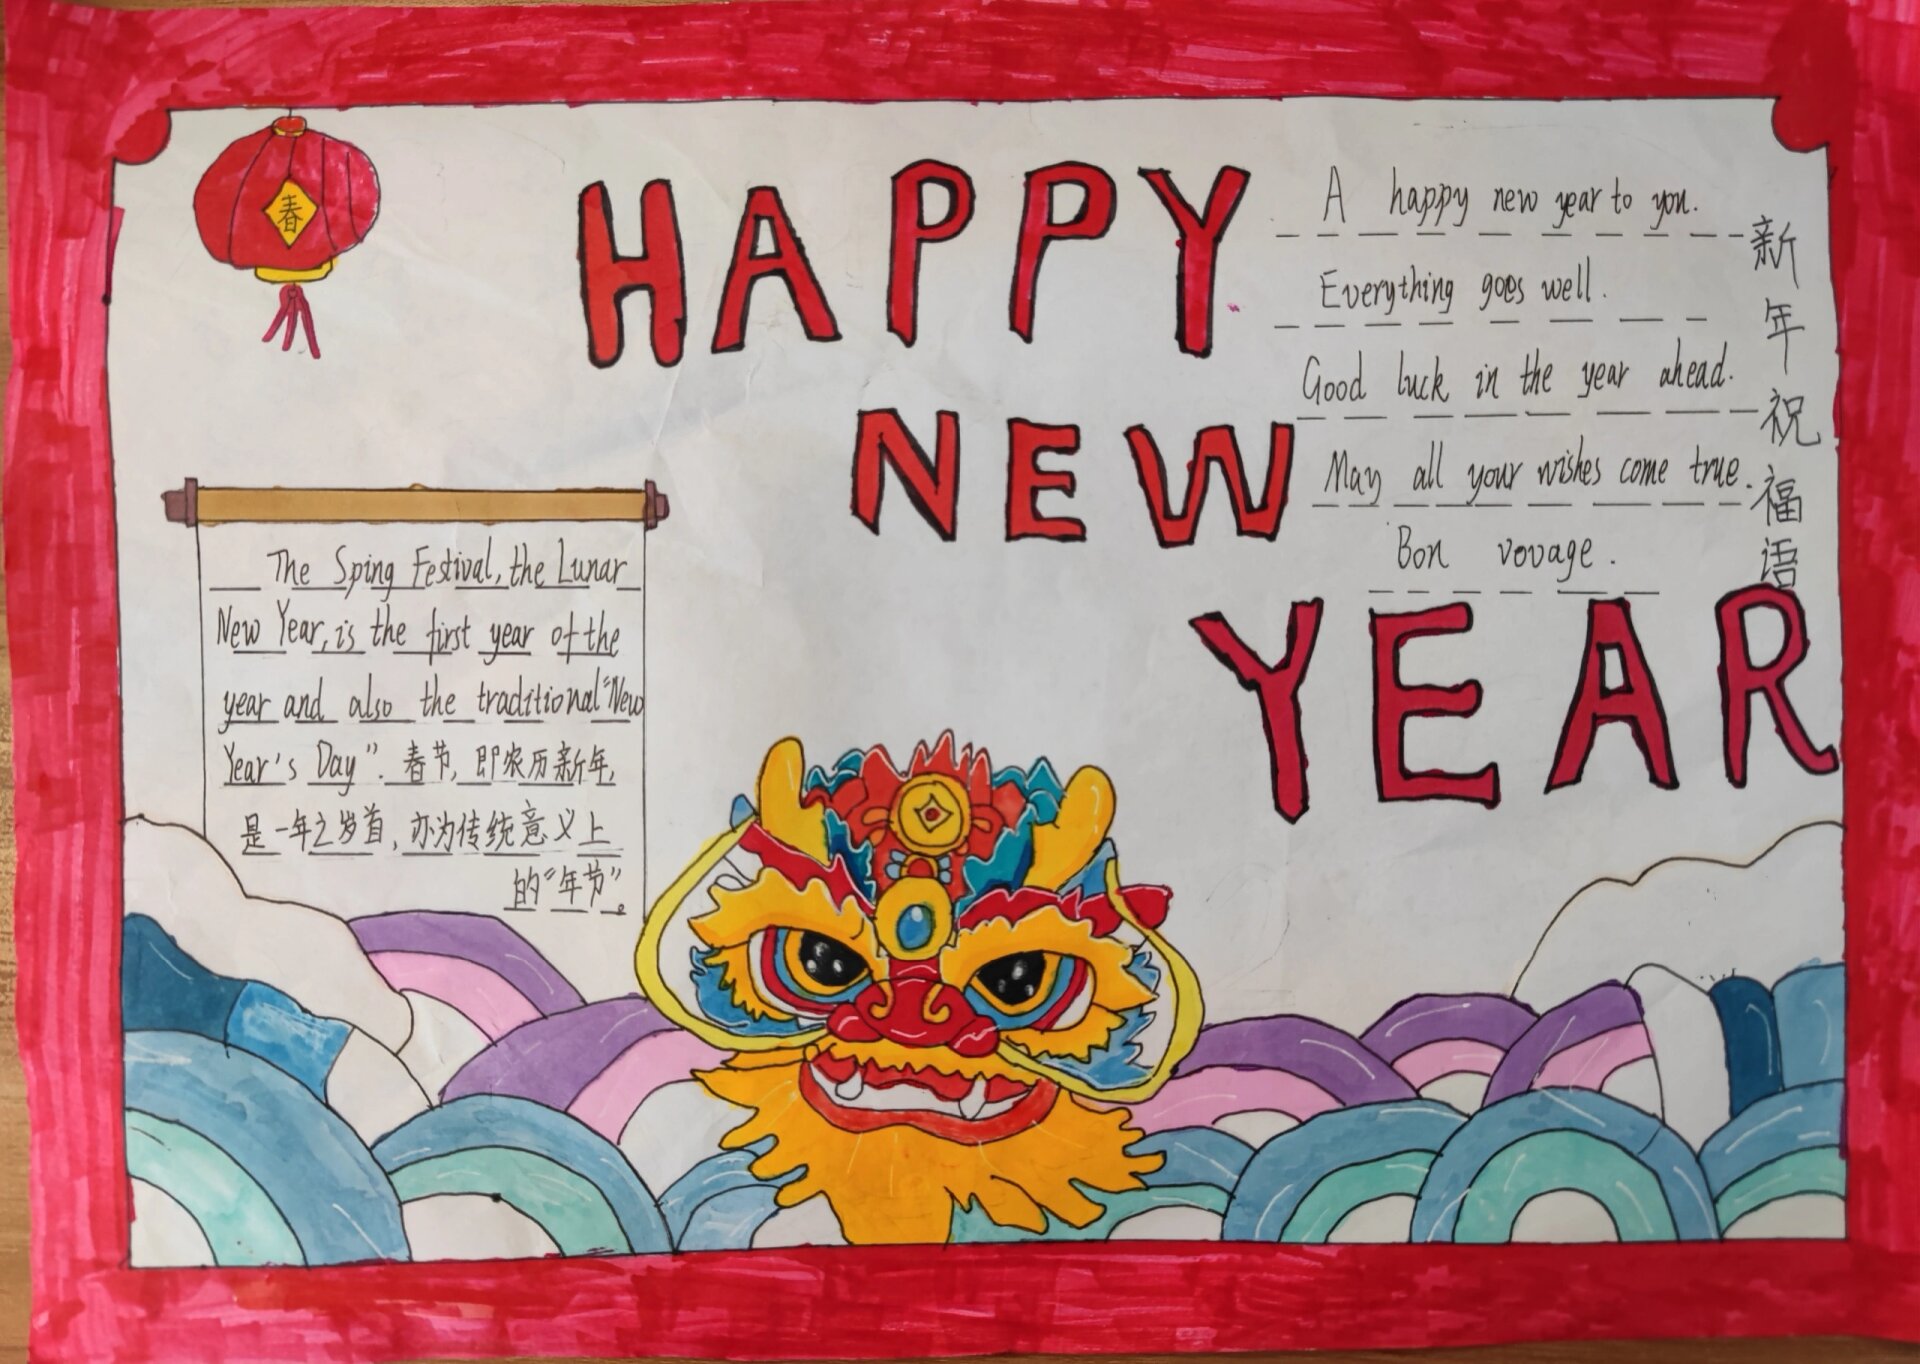 春
HAPPY
NEW
YEAR
A happy new year to you.
Everything goes well.
Good luck in the year ahead.
May all your wishes come true.
Bon vovage.
新年祝福语
The Sping Festival, the Lunar
New Year, is the first year of the
year and also the traditional "New
Year's Day". 春节, 即农历新年,
是一年之岁首, 亦为传统意义上
的"年节"。